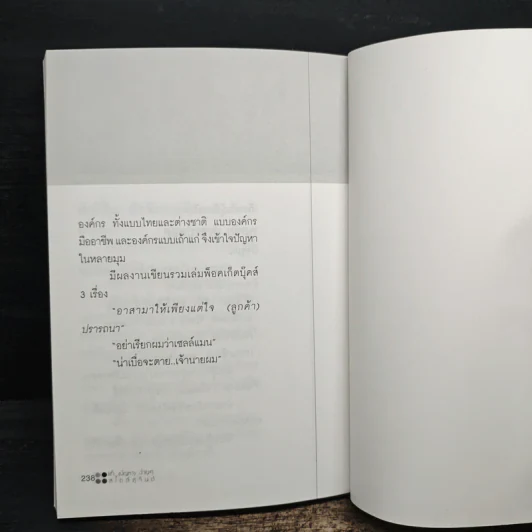 องค์กร ทั้งแบบไทยและต่างชาติ แบบองค์กร
มืออาชีพ และองค์กรแบบเถ้าแก่ จึงเข้าใจปัญหา
ในหลายมุม
มีผลงานเขียนรวมเล่มพ็อคเก็ตบุ๊คส์
3 เรื่อง
"อาสามาให้เพียงแต่ใจ (ลูกค้า)
ปรารถนา"
"อย่าเรียกผมว่าเซลล์แมน"
"น่าเบื่อจะตาย..เจ้านายผม"
238